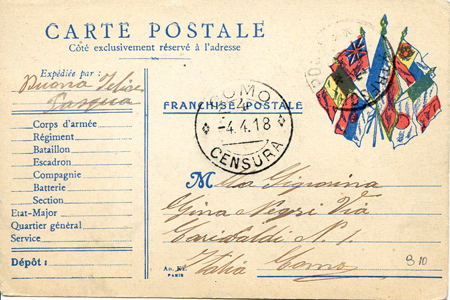 CARTE POSTALE
Côté exclusivement réservé à l'adresse
Expédiée par :
Buona Felice
Pasqua
COMO
FRANCHISE POSTALE
-4.4.18
CENSURA
Corps d'armée
Régiment
Bataillon
Escadron
Compagnie
Batterie
Section
Etat-Major
Quartier général
Service
Dépôt :
M lla Signorina
Gina Negri Via
Garibaldi N. 1.
Italia Como
PARIS
810